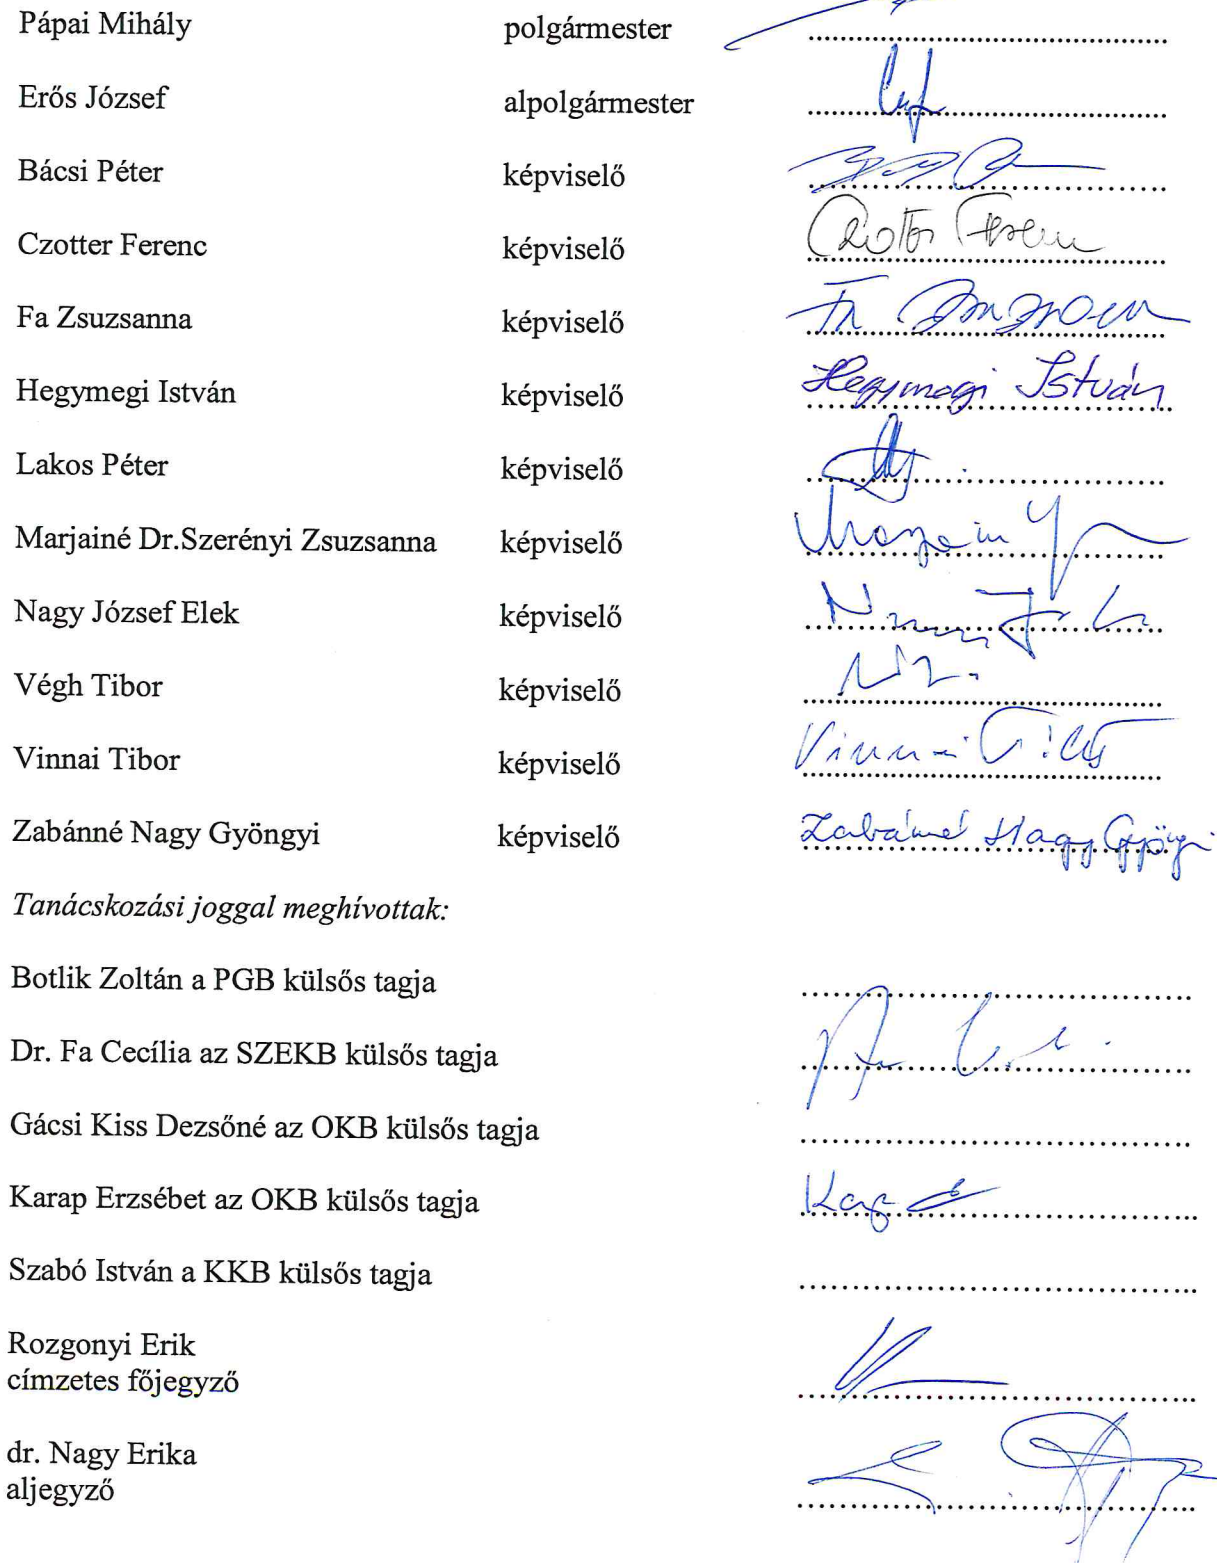 Pápai Mihály polgármester
Erős József alpolgármester
Bácsi Péter képviselő
Czotter Ferenc képviselő Czotter Ferenc
Fa Zsuzsanna képviselő Fa Zsuzsanna
Hegymegi István képviselő Hegymegi István
Lakos Péter képviselő
Marjainé Dr.Szerényi Zsuzsanna képviselő
Nagy József Elek képviselő
Végh Tibor képviselő
Vinnai Tibor képviselő Vinnai Tibor
Zabánné Nagy Gyöngyi képviselő Zabánné Nagy Gyöngyi
Tanácskozási joggal meghívottak:
Botlik Zoltán a PGB külsős tagja
Dr. Fa Cecília az SZEKB külsős tagja
Gácsi Kiss Dezsőné az OKB külsős tagja
Karap Erzsébet az OKB külsős tagja
Szabó István a KKB külsős tagja
Rozgonyi Erik
címzetes főjegyző
dr. Nagy Erika
aljegyző